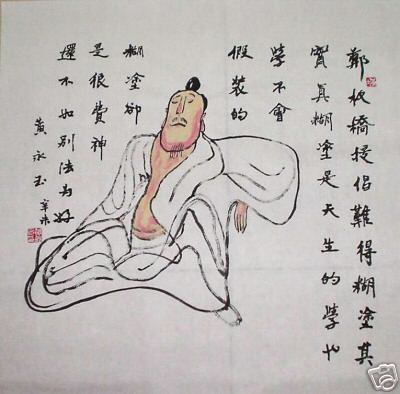 鄭板橋提倡難得糊塗其
實真糊塗是天生的學也
學不會
假裝的
糊塗卻
是很費神
還不如別法為好
黃永玉 辛未